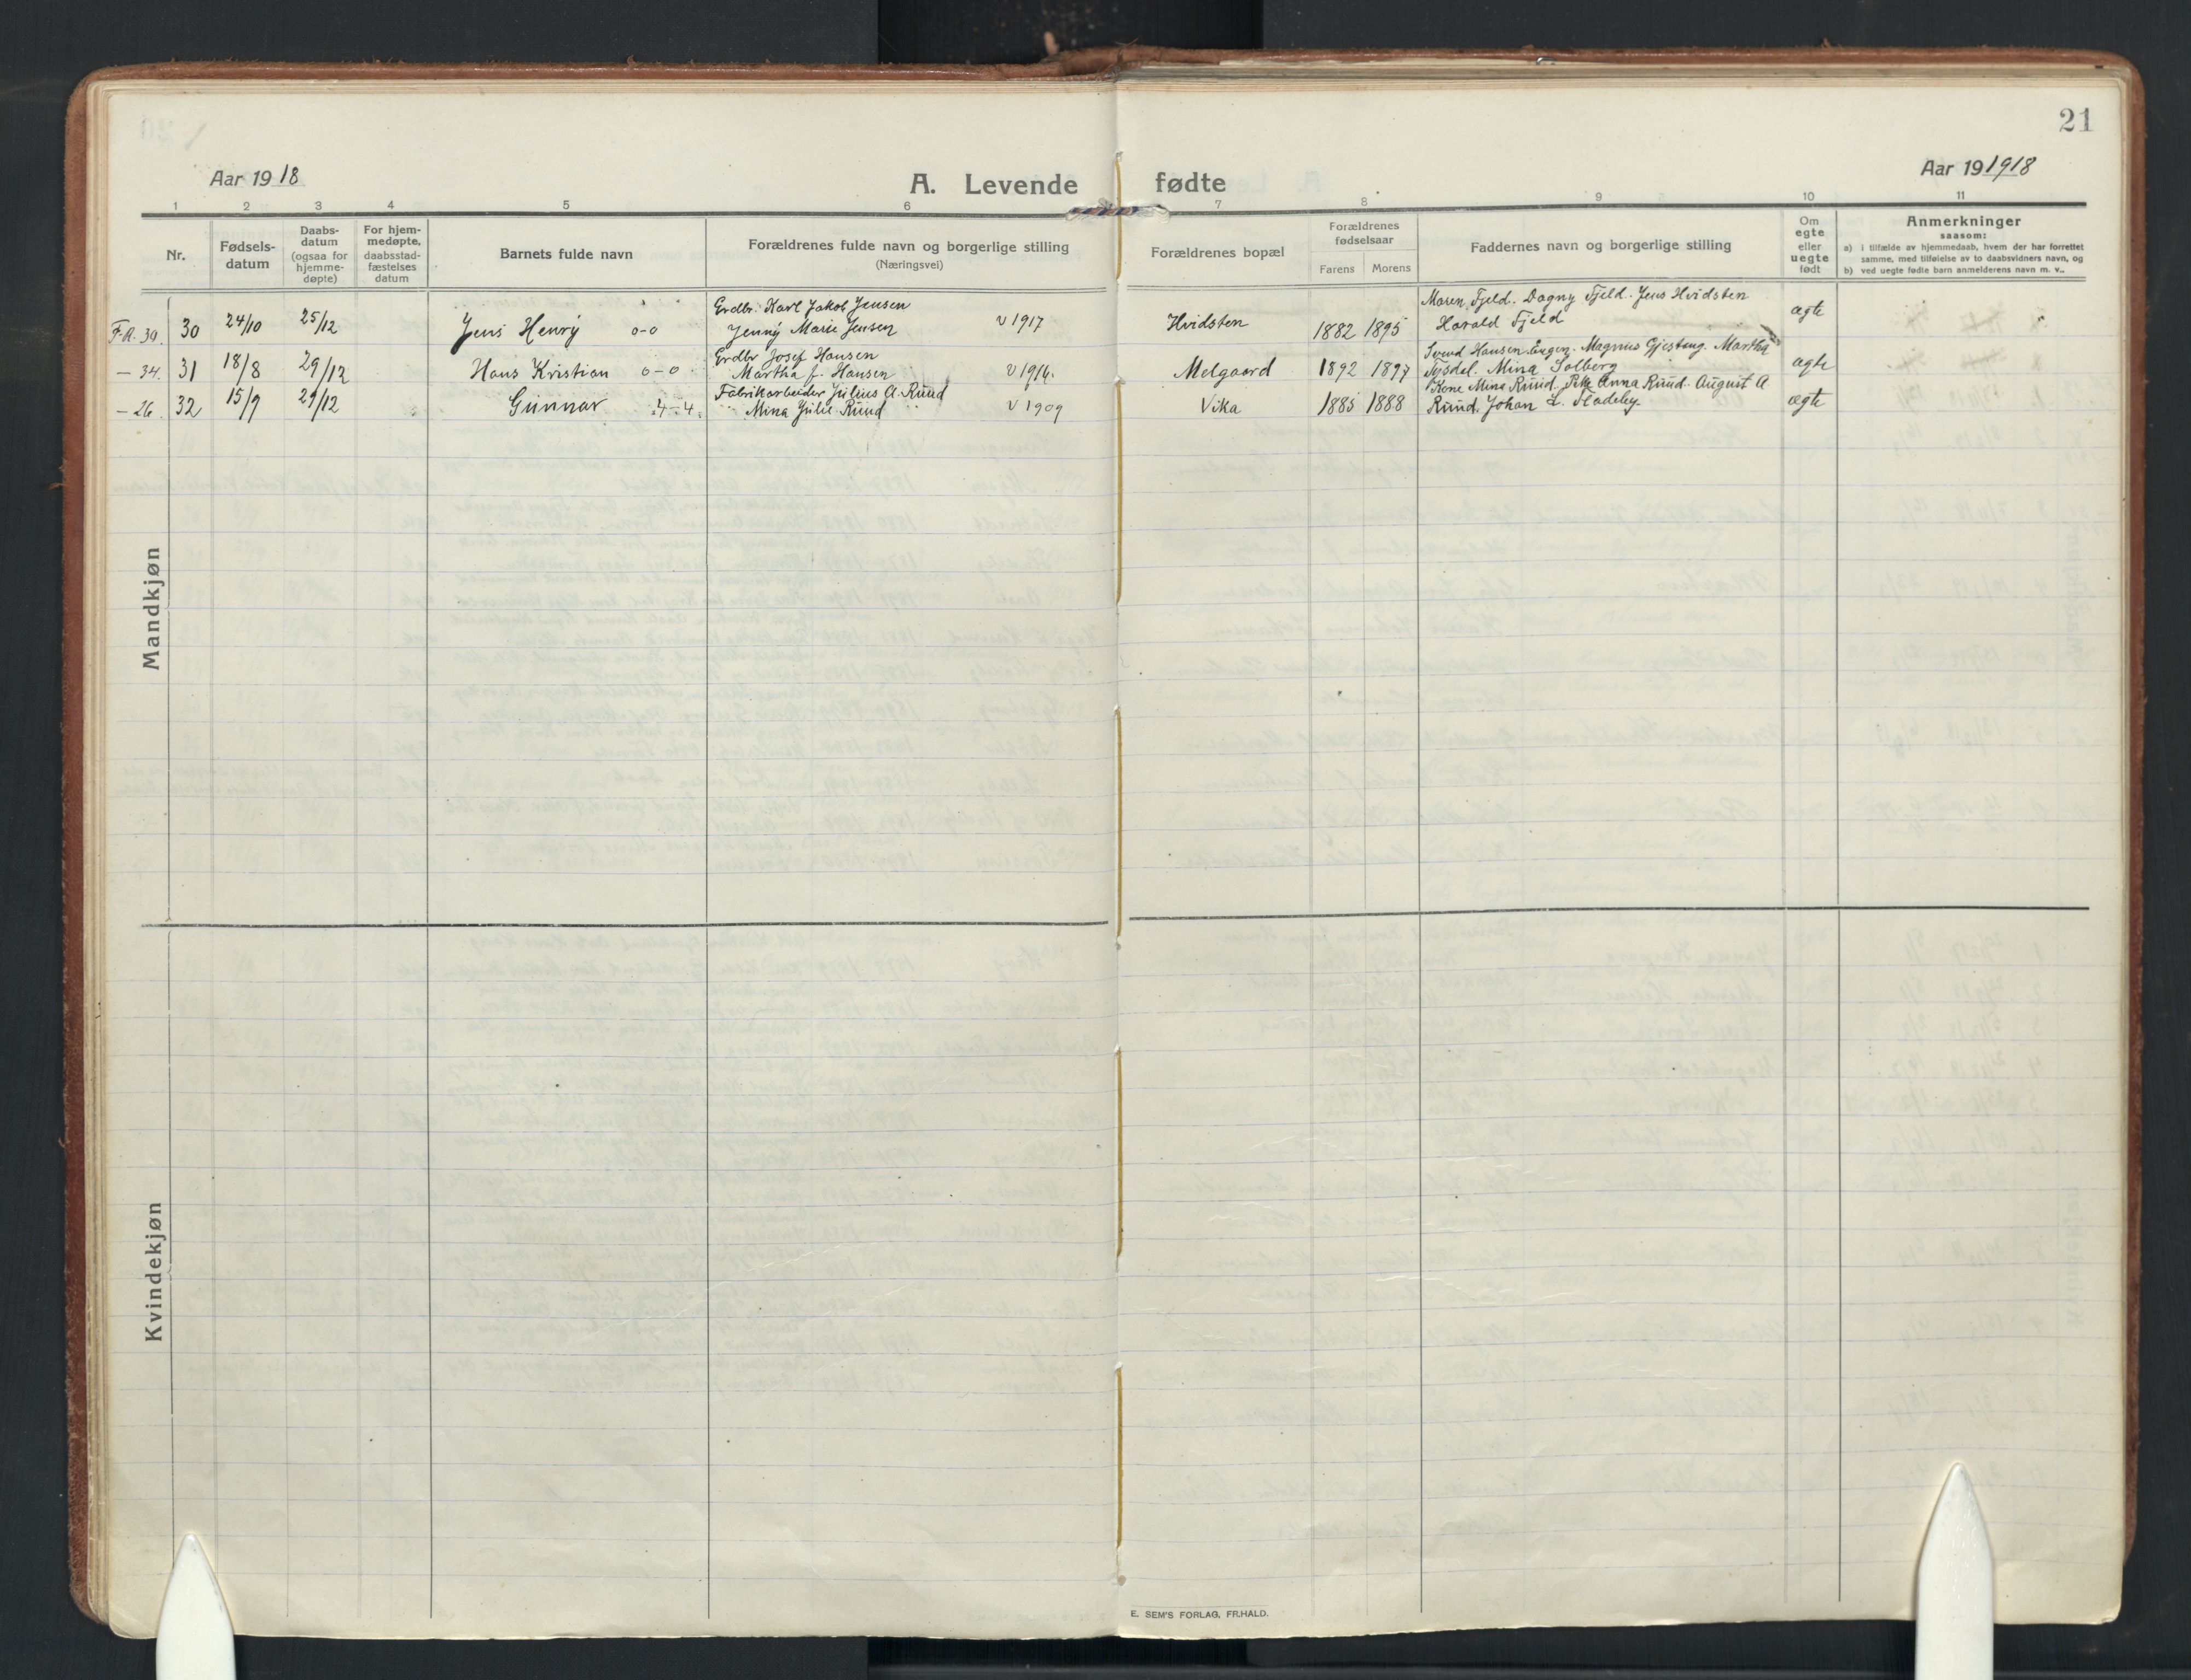 21
Aar 19 18
A. Levende fødte
Aar 19 1918
1 2 3 4 5 6 7 8 9 10 11
Nr.
Fødsels-
datum
Daabs-
datum
(ogsaa for
hjemme-
døpte)
For hjem-
medøpte,
daabsstad-
fæstelses
datum
Barnets fulde navn
Forældrenes fulde navn og borgerlige stilling
(Næringsvei)
Forældrenes bopæl
Forældrenes
fødselsaar
Farens Morens
Faddernes navn og borgerlige stilling
Om
egte
eller
uegte
født
Anmerkninger
saasom:
a) i tilfælde av hjemmedaab, hvem der har forrettet
samme, med tilføielse av to daabsvidners navn, og
b) ved uegte fødte barn anmelderens navn m. v..
Mandkjøn
F.A. 30. 30 24/10 25/12 Jens Henry 0-0
Grdbr. Karl Jakob Jensen
Jenny Marie Jensen v 1917
Hvidsten 1882 1895
Maren Fjeld. Dagny Fjeld. Jens Hvidsten
Harald Fjeld
ægte
— 34. 31 18/8 29/12 Hans Kristian 0-0
Grdbr Josef Hansen
Martha f. Hansen v 1916.
Melgaard 1892 1897
Svend Hansen. Magnus Gjestang. Martha
Mina Solberg
ægte
— 26. 32 15/9 29/12 Gunnar 4-4
Fabrikarbeider Julius A. Ruud
Mina Julie Ruud v 1909
Vika 1885 1888
Kone Mina Ruud, Anna Ruud. August A
Ruud. Johan L. Hadeby.
ægte
Kvindekjøn
E. SEM'S FORLAG, FR.HALD.